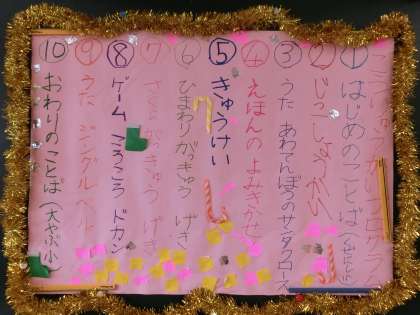 プログラム
① はじめのことば
② じこしょうかい
③ うた あわてんぼうのサンタクロース
④ えほんの よみきかせ
⑤ きゅうけい
⑥ ひまわりがっきゅう げき
⑦ がっきゅう げき
⑧ ゲーム ごろごろ ドカン
⑨ うた ジングルベル
⑩ おわりのことば (大やぶ小)